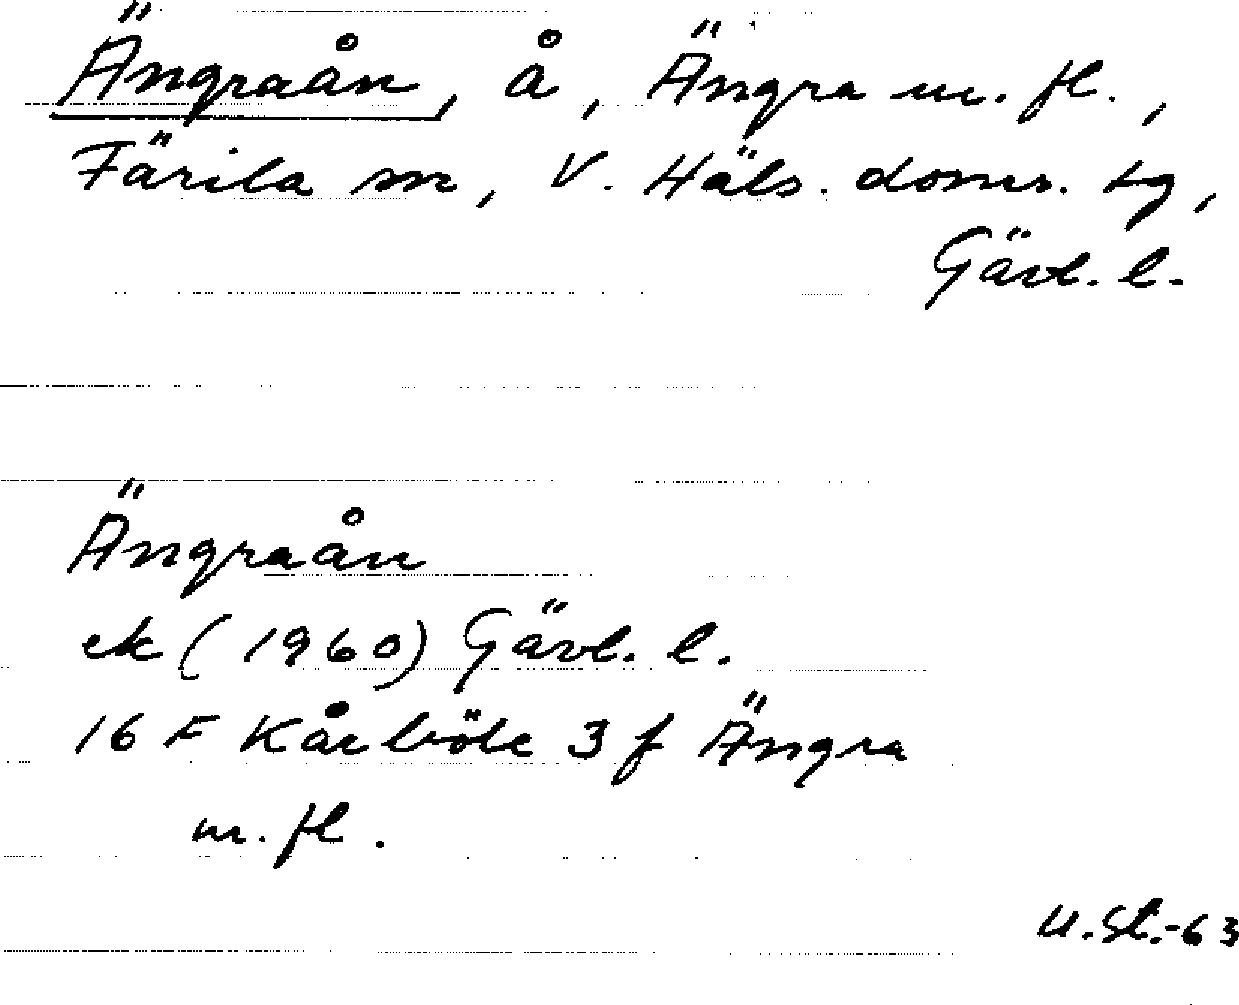 Ängraån, å, Ängra m. fl.,
Färila sn, V. Häls. doms. tg,
Gävl. l.
Ängraån
ek (1960) Gävl. l.
16 F Kårböle 3 f Ängra
m. fl.
U.St.-63